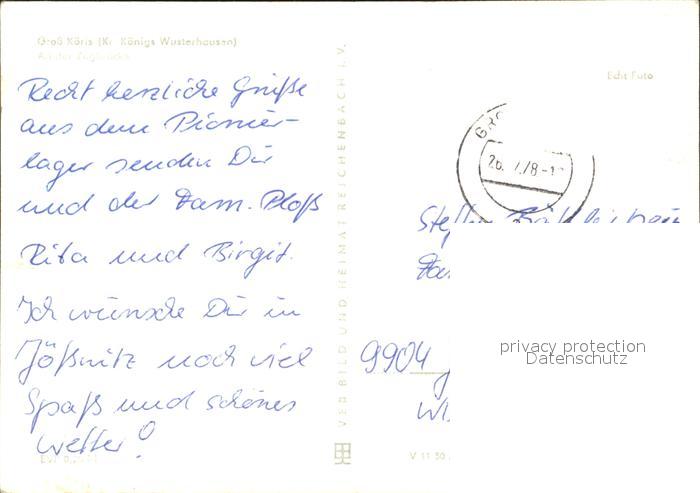 Groß Köris (Kr. Königs Wusterhausen)
An der Zugbrücke
Recht herzliche Grüße
aus dem Pionier-
lager senden Dir
und der Fam. Ploß
Rita und Birgit.
Ich wünsche Dir in
Jößnitz noch viel
Spaß und schönes
Wetter!
VEB BILD UND HEIMAT REICHENBACH I. V.
Echt Foto
26. 7.78-1
9904
privacy protection
Datenschutz
V 11 50